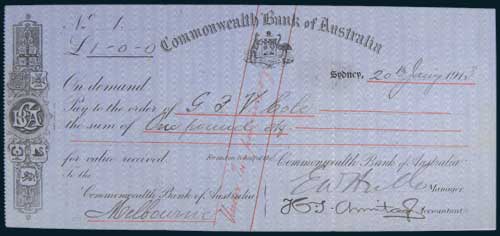 No. 1.
£1-0-0
Commonwealth Bank of Australia
Sydney, 20th Jany 1913
On demand
Pay to the order of G F V Cole
the sum of One pound only
for value received.
For and on behalf of the Commonwealth Bank of Australia
To the
Manager.
Commonwealth Bank of Australia
Melbourne
Accountant.